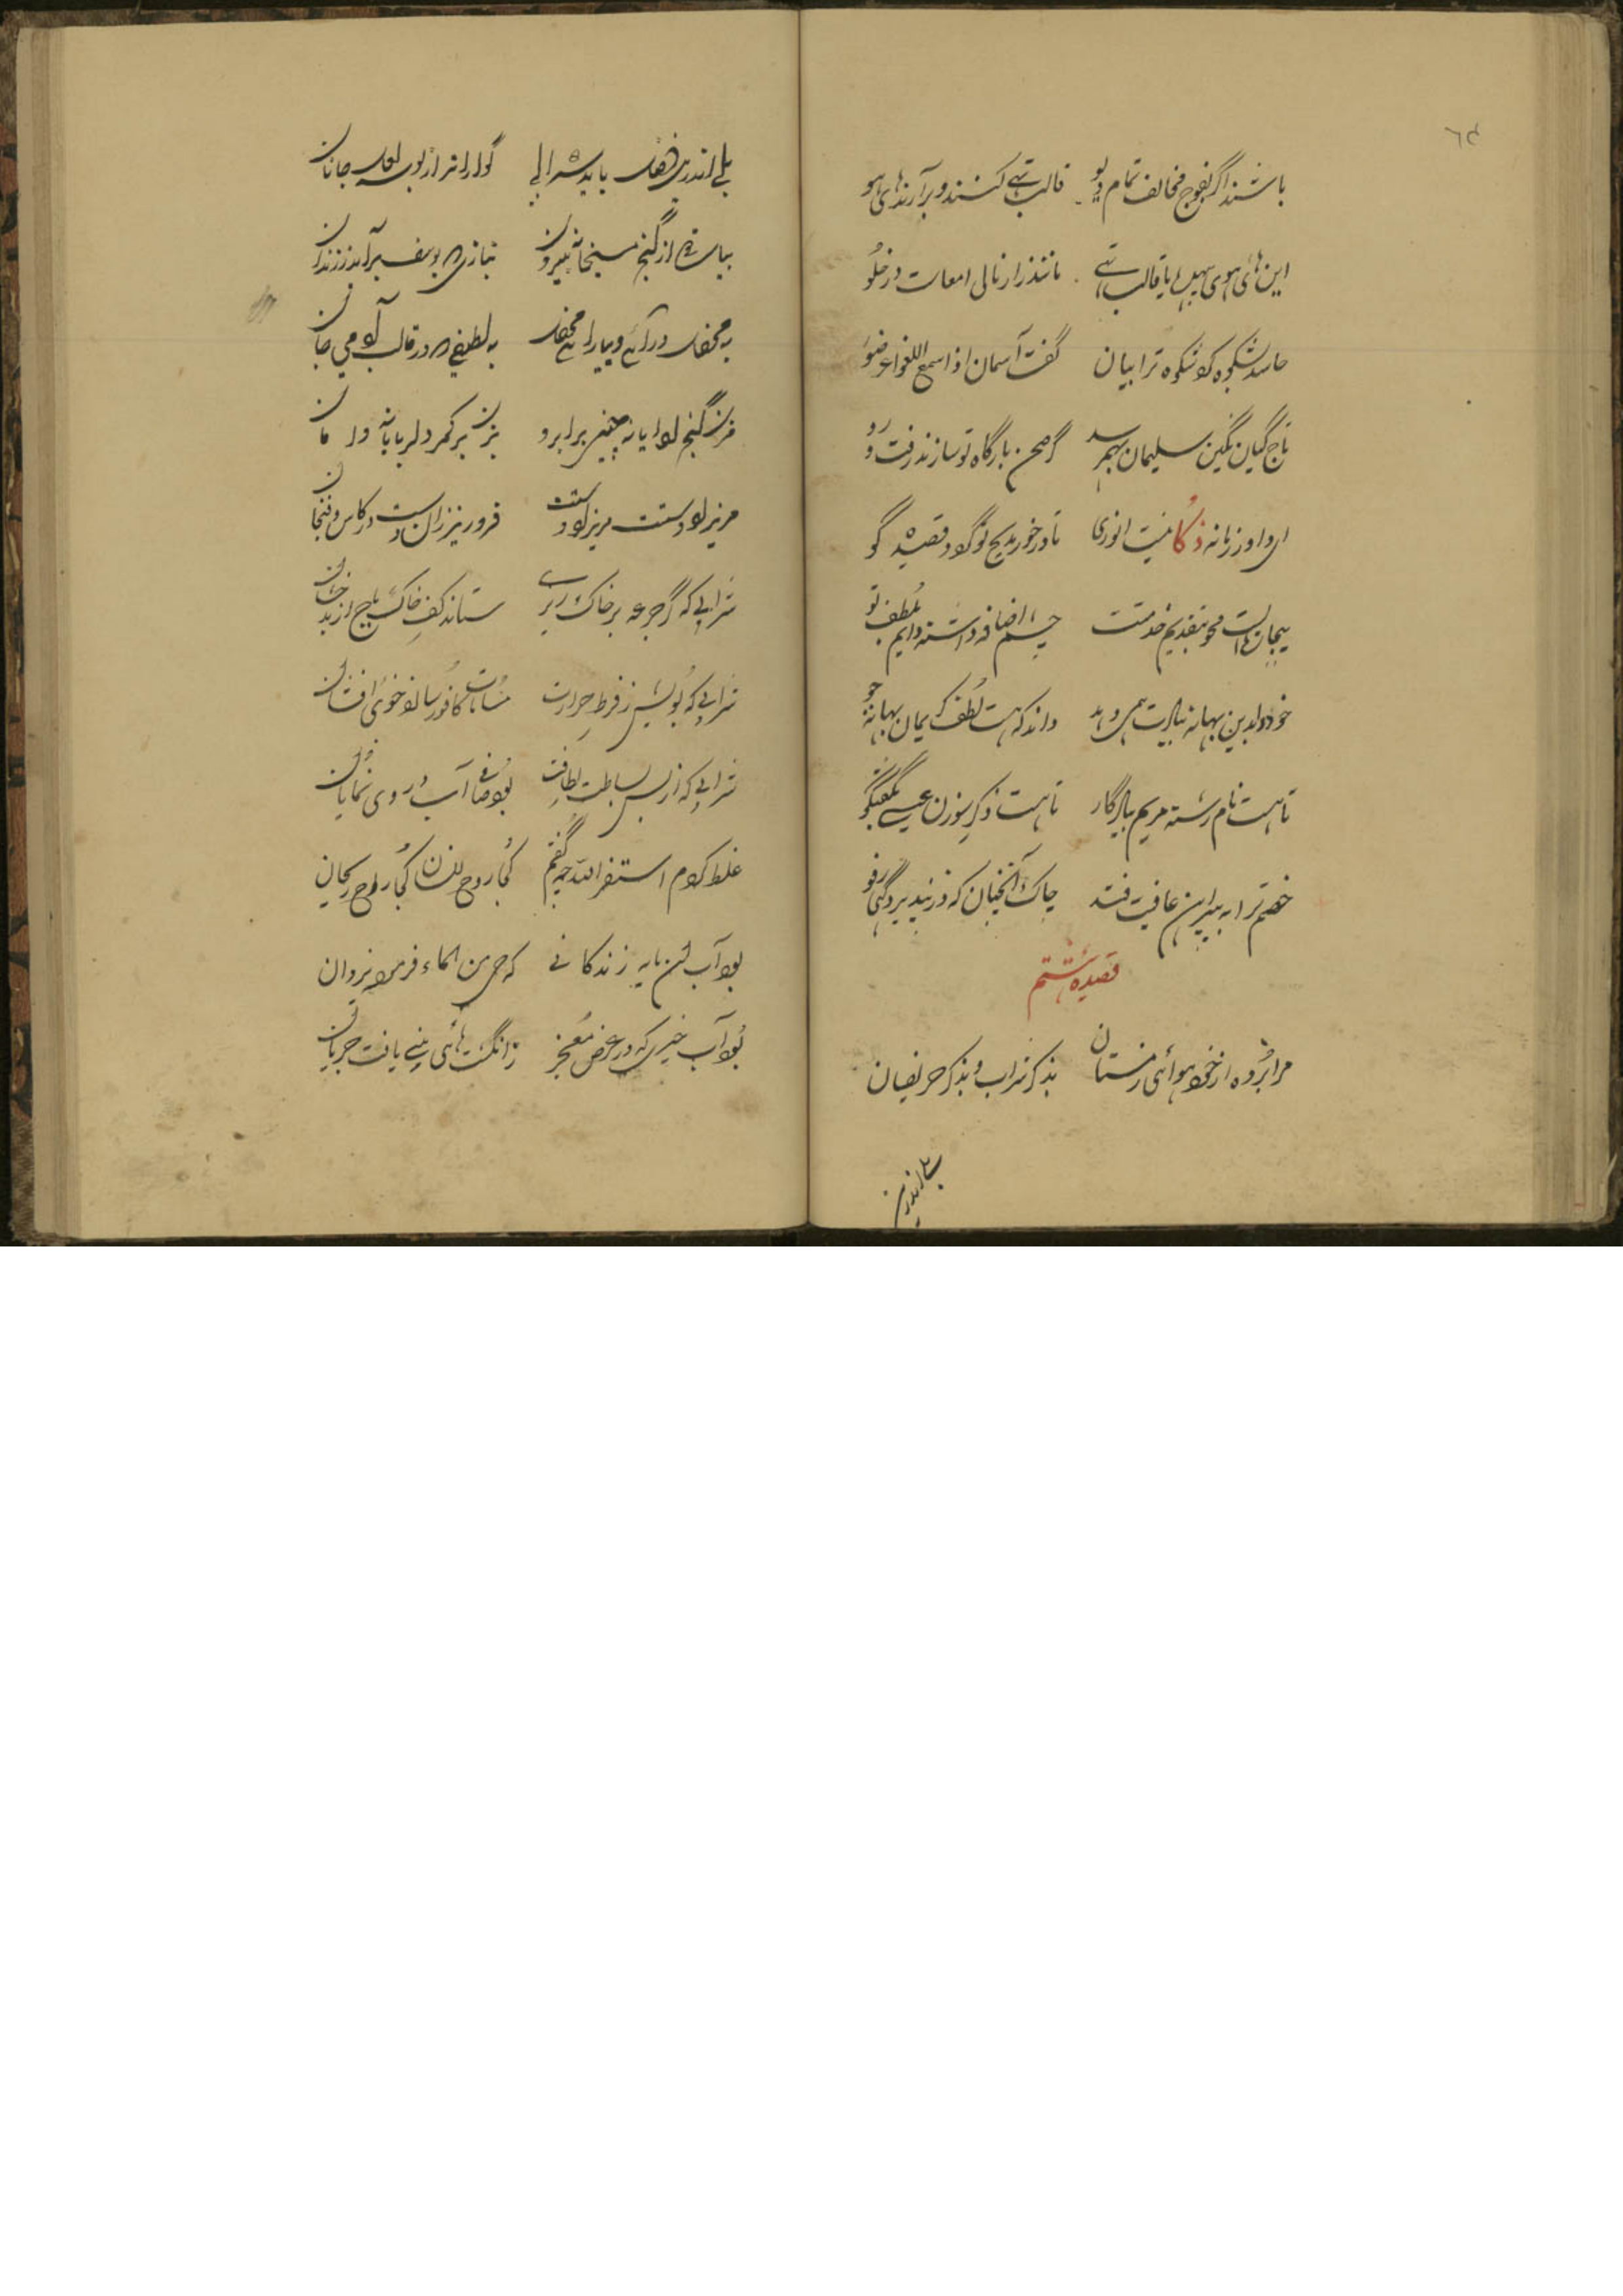 ٦٤
باشند اگر بفوج مخالف تمام دیو قالب تهی کنند و برآرند های هو
این های هوی با قالب تهی مانند از نالی امعاست در خلو
حاسد شکوه کو شکوه ترا بیان گفت آسمان اذا سمع اللغو اعرضوا
تاج کیان نگین سلیمان بهم رسد گر صحن بارگاه تو سازند رفت و رو
ای داور زمانه ذکا نیست انوری تا در خور مدیح تو گردد قصیده گو
محو بتقدیم خدمتت چشم اضافه داشته دایم بلطف تو
خود را بدین بهانه بیادت همی دهد داند که هست لطف کریمان بهانه جو
تا هست نام رشته مریم بیادگار تا هست ذکر سوزن عیسی بگفتگو
خصم ترا به پیراهن عافیت فتد چاک آنچنان که در نپذیرد گهی رفو
قصیده هشتم
مرا برده از خود هوائی زمستان بذکر شراب و بذکر حریفان
بلی اندرین
بلی اندرین فصل باید شرابی گوارا تر از بوسه لعل جانان
بیا از کنج بیرون بنازی که یوسف برآمد ز زندان
به محفل درآئی و بیارا محفل به لطفی که در قالب آدمی جان
مزن گنج چین برابرو بزن بر کمر دلربایانه دامان
مریز او دستت مریز او دستت فرو ریز زان دست در کاس و فنجان
شرابی که گر جرعه بر خاک ریزی ستاند کف خاک باج از بدخشان
شرابی که بویش ز فرط حرارت مسامات کافور سازد خوی افشان
شرابی که از بس بساطت لطافت بود صافی آب روی نمایان
غلط کردم استغفر الله چه گفتم کجا روح انسان کجا روح ریحان
بود آب لیکن مایه زندگانی که حی من الماء فرمود یزدان
بود آب خیری که در عرض معجز ز انگشت های نبی یافت جریان